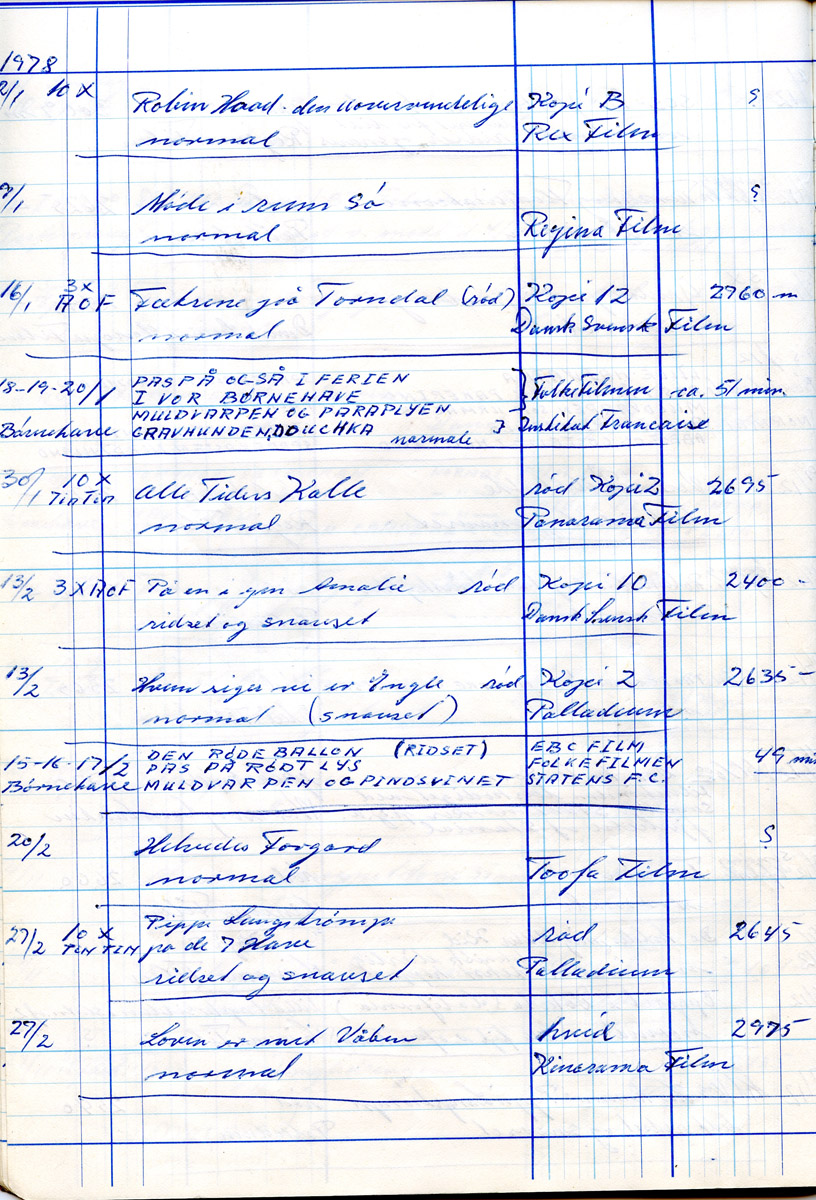 1978
2/1 10 X Robin Hood - den uovervindelige Kopi B ?
normal Rex Film
9/1 Møde i rum Så ?
normal Regina Film
16/1 3x AOF Fætrene på Torndal (rød) Kopi 12 2760 m
normal Dansk Svensk Film
18-19-20/1 PAS PÅ OGSÅ I FERIEN
I VOR BØRNEHAVE } Folkefilmen ca. 51 min.
MULDVARPEN OG PARAPLYEN
Børnehave GRAVHUNDEN DOUCHKA normale } Institut Francaise
30/1 10 X TinTin Alle Tiders Kalle rød Kopi 2 2695
normal Panorama Film
13/2 3 X AOF På'en igen Amalie rød Kopi 10 2400 -
ridset og snavset Dansk Svensk Film
13/2 Hvem siger vi er Engle rød Kopi 2 2635 -
normal (snavset) Palladium
DEN RØDE BALLON (RIDSET) EBC FILM
15-16-17/2 PAS PÅ RØDT LYS FOLKEFILMEN 49 min
Børnehave MULDVARPEN OG PINDSVINET STATENS F.C.
20/2 Helvedes Forgård ?
normal Toofa Film
27/2 10 X TIN TIN Pippi Langstrømpe
på de 7 Have rød 2645
ridset og snavset Palladium
27/2 Loven er mit Våben hvid 2975
normal Kinorama Film